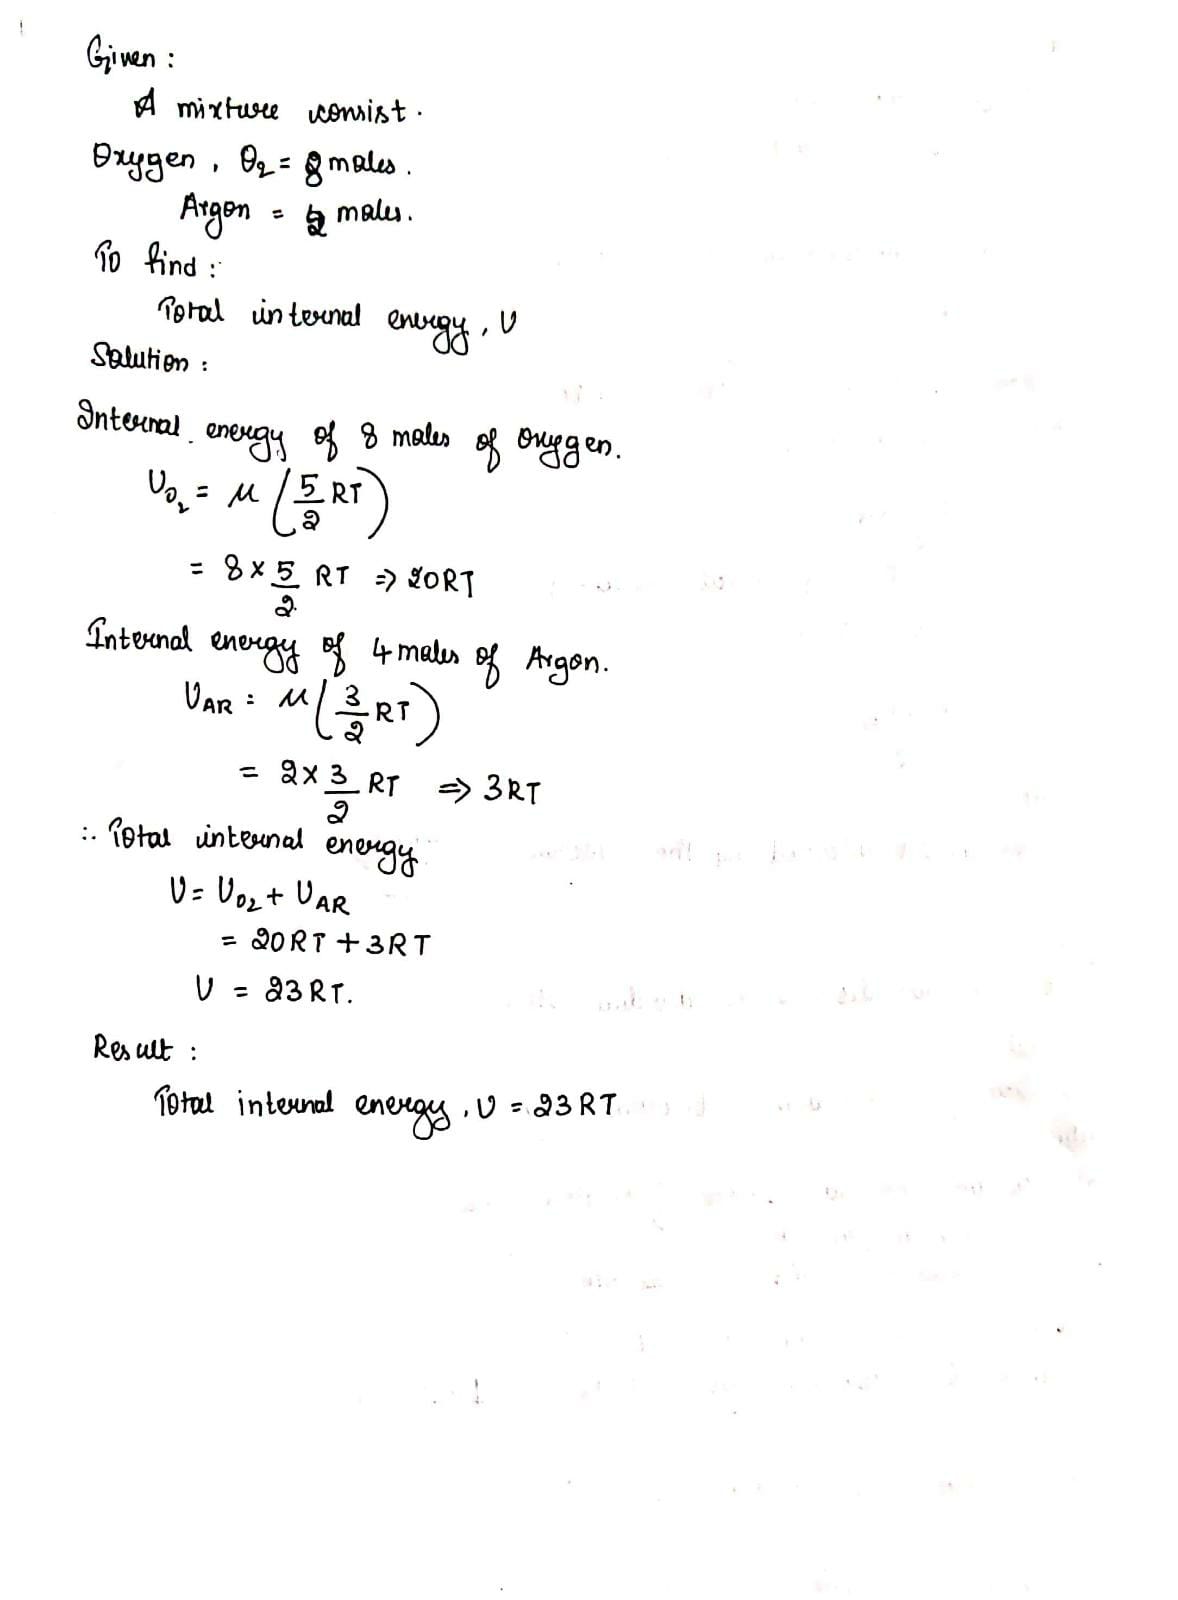 Given :
A mixture consist.
Oxygen, O2 = 8 moles.
Argon = 2 moles.
To find :
Total internal energy, U
Solution :
Internal energy of 8 moles of oxygen.
UO2 = μ (5/2 RT)
= 8 × 5/2 RT ⇒ 20RT
Internal energy of 4 moles of Argon.
UAR = μ (3/2 RT)
= 2 × 3/2 RT ⇒ 3RT
∴ Total internal energy
U = UO2 + UAR
= 20RT + 3RT
U = 23RT.
Result :
Total internal energy, U = 23RT